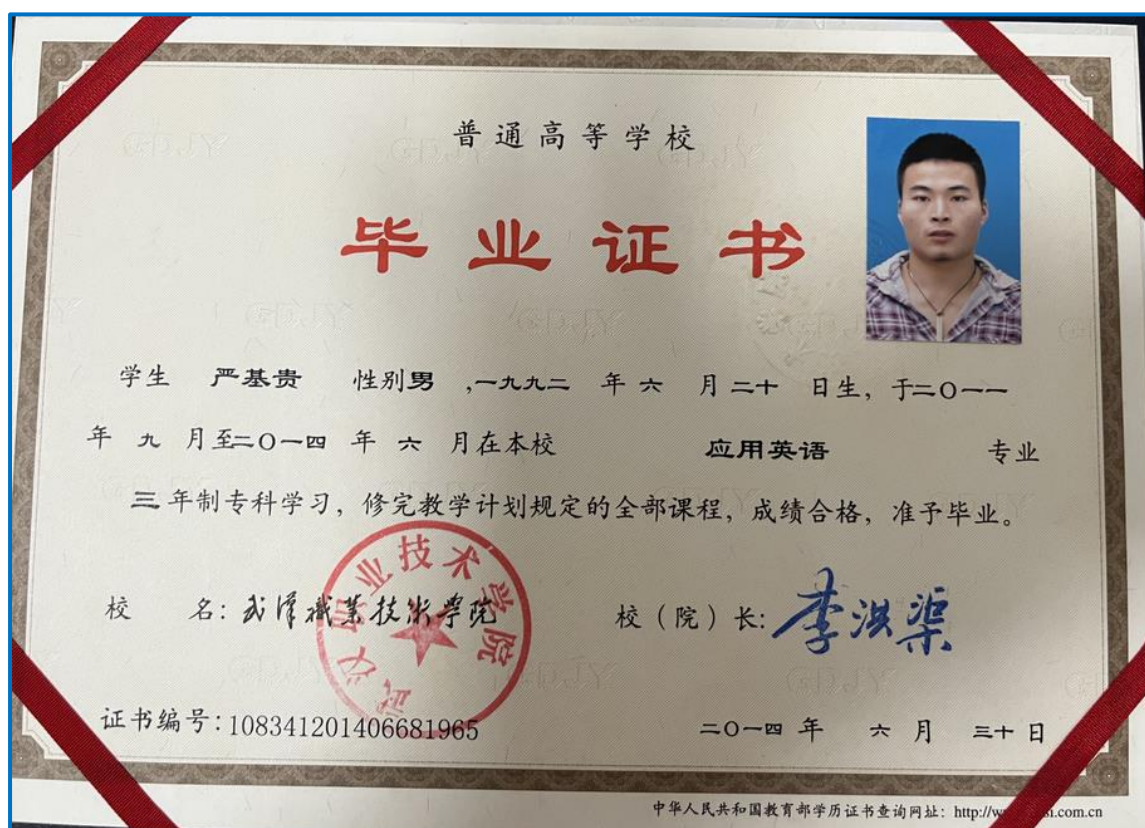 普通高等学校
毕业证书
学生 严基贵 性别男 ,一九九二 年 六 月 二十 日生, 于二〇一一
年 九 月至二〇一四 年 六 月在本校 应用英语 专业
三 年制专科学习, 修完教学计划规定的全部课程, 成绩合格, 准予毕业。
校 名: 武汉職業技術学院
武汉职业技术学院
校（院）长: 李洪渠
证书编号: 108341201406681965
二〇一四 年 六 月 三十 日
中华人民共和国教育部学历证书查询网址: http://w si.com.cn